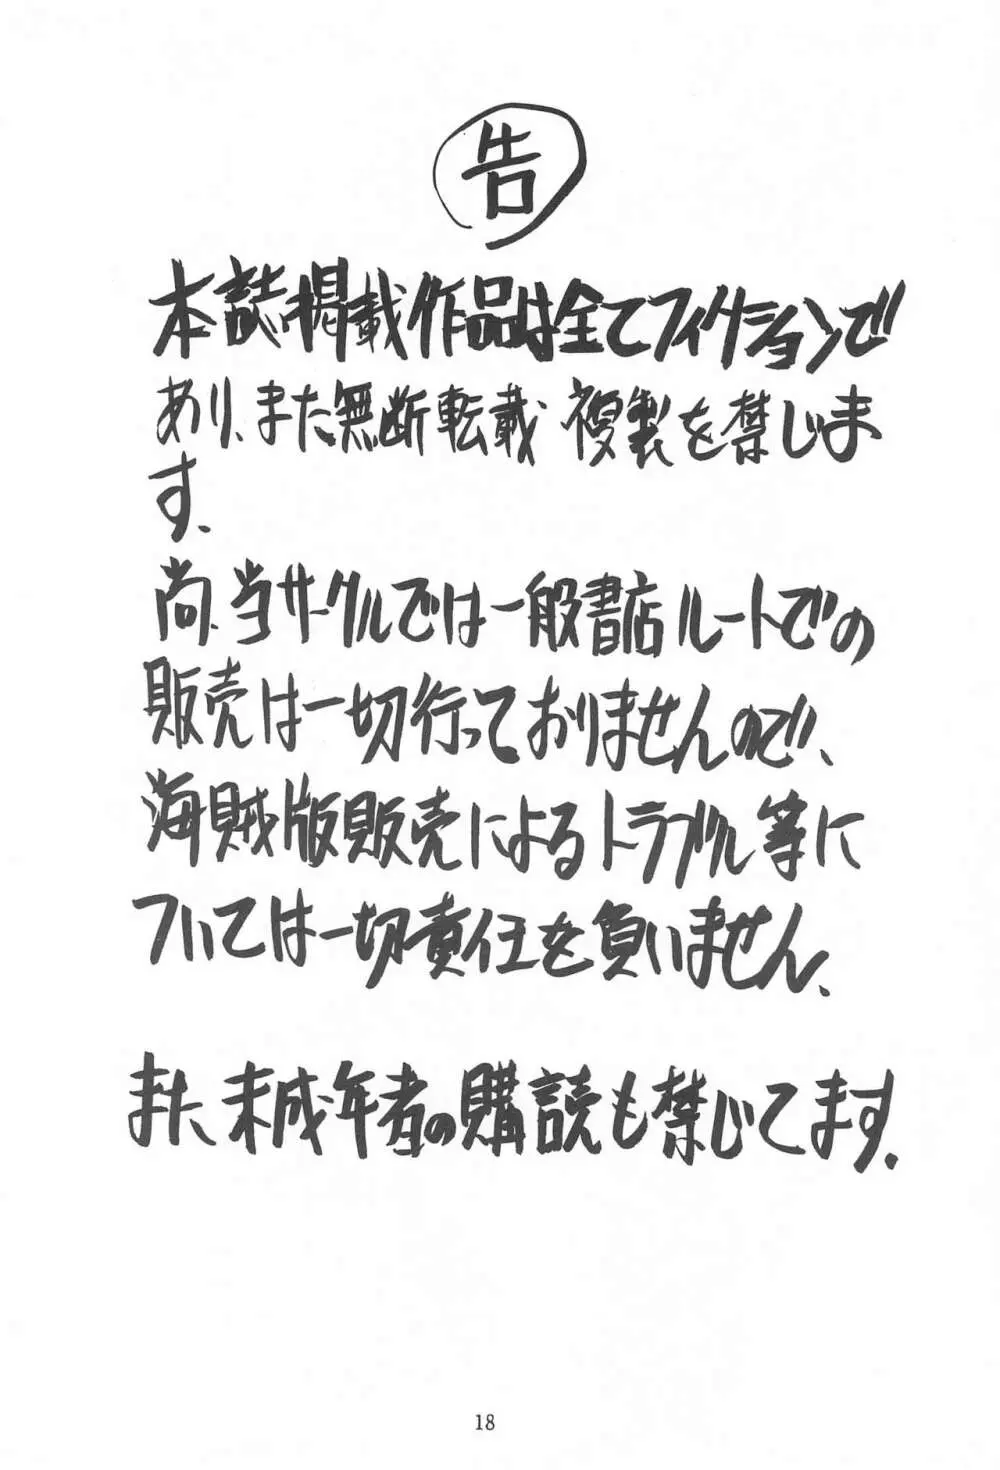 告
本誌掲載作品は全てフィクションで
あり、また無断転載 複製を禁じま
す、
尚、当サークルでは一般書店ルートでの
販売は一切行っておりませんので、
海賊版販売によるトラブル等に
ついては一切責任を負いません、
また、未成年者の購読も禁じてます、
18